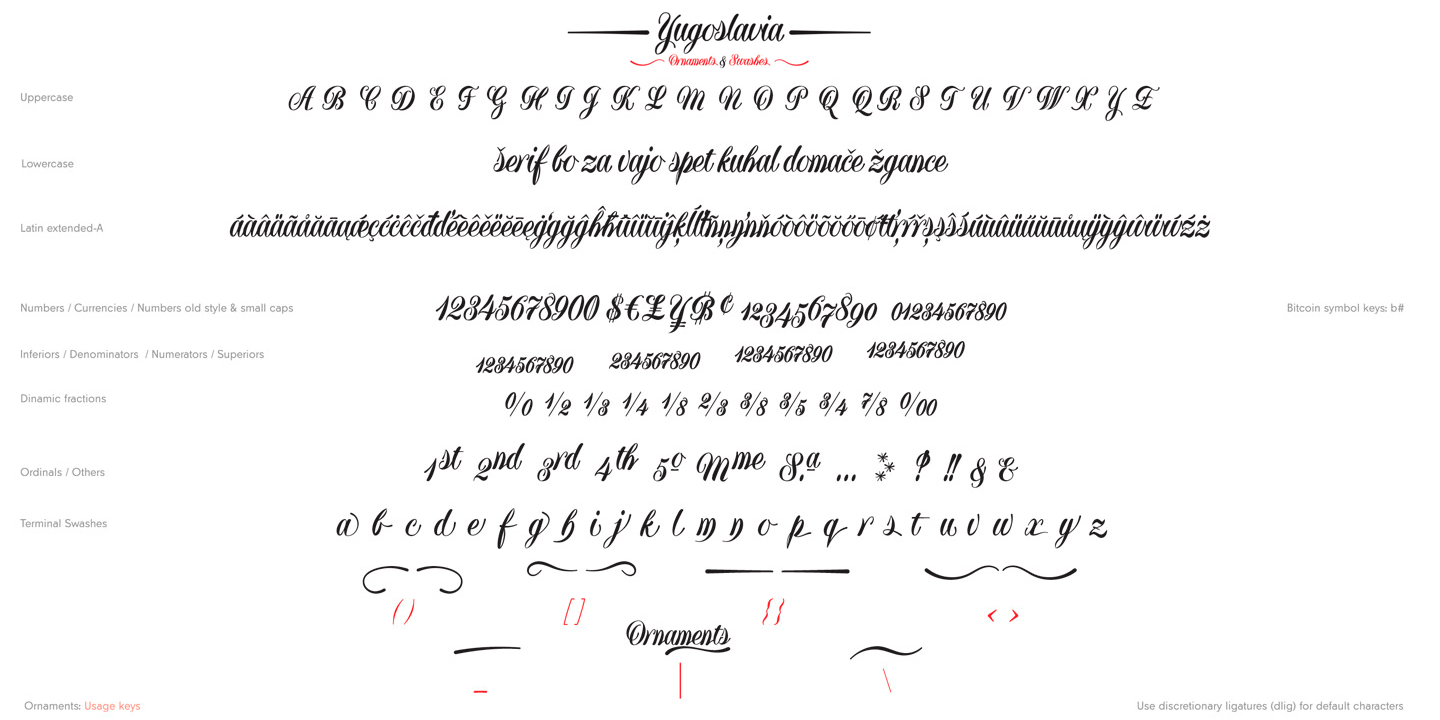 Yugoslavia
Ornaments & Swashes
Uppercase
A B C D E F G H I J K L M N O P Q Q R S T U V W X Y Z
Lowercase
šerif bo za vajo spet kuhal domače žgance
Latin extended-A
Numbers / Currencies / Numbers old style & small caps
12345678900 $€£¥₿¢ 1234567890 01234567890
Bitcoin symbol keys: b#
Inferiors / Denominators / Numerators / Superiors
1234567890 234567890 1234567890 1234567890
Dinamic fractions
0/0 1/2 1/3 1/4 1/8 2/3 3/8 3/5 3/4 7/8 0/00
Ordinals / Others
1st 2nd 3rd 4th 5º Mme S.ª ... ‽ !! & &
Terminal Swashes
a b c d e f g h i j k l m n o p q r s t u v w x y z
( ) [ ] { } < >
Ornaments
_ | \
Ornaments: Usage keys
Use discretionary ligatures (dlig) for default characters